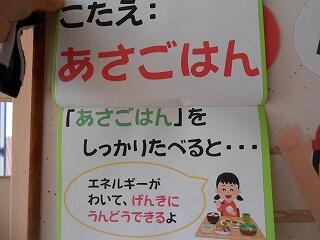 こたえ：
あさごはん
「あさごはん」を
しっかりたべると・・・
エネルギーが
わいて、げんきに
うんどうできるよ